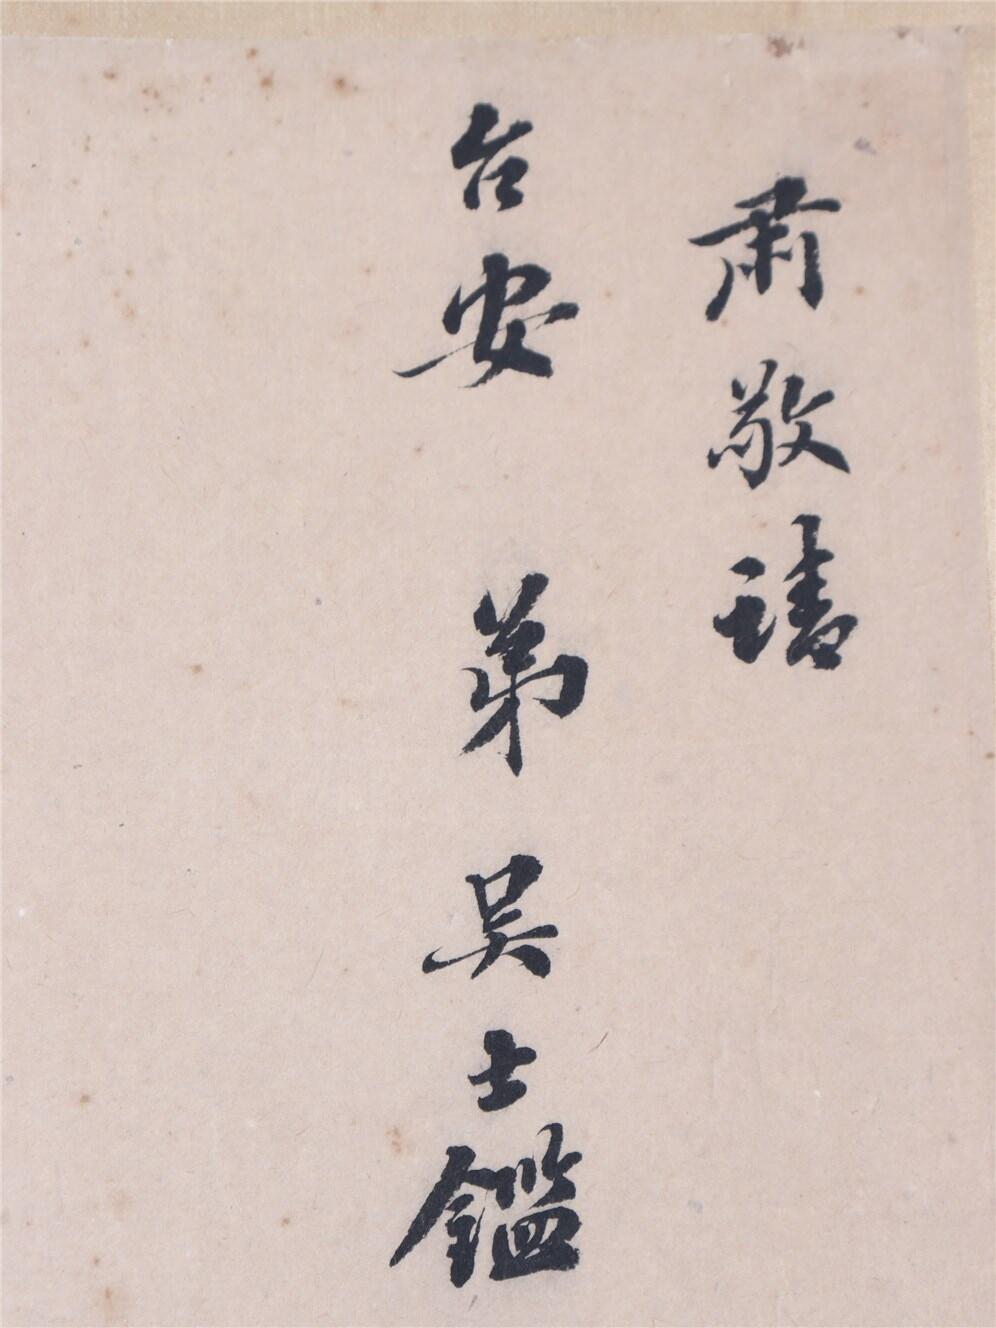 肅敬請
台安 弟吳士鑑